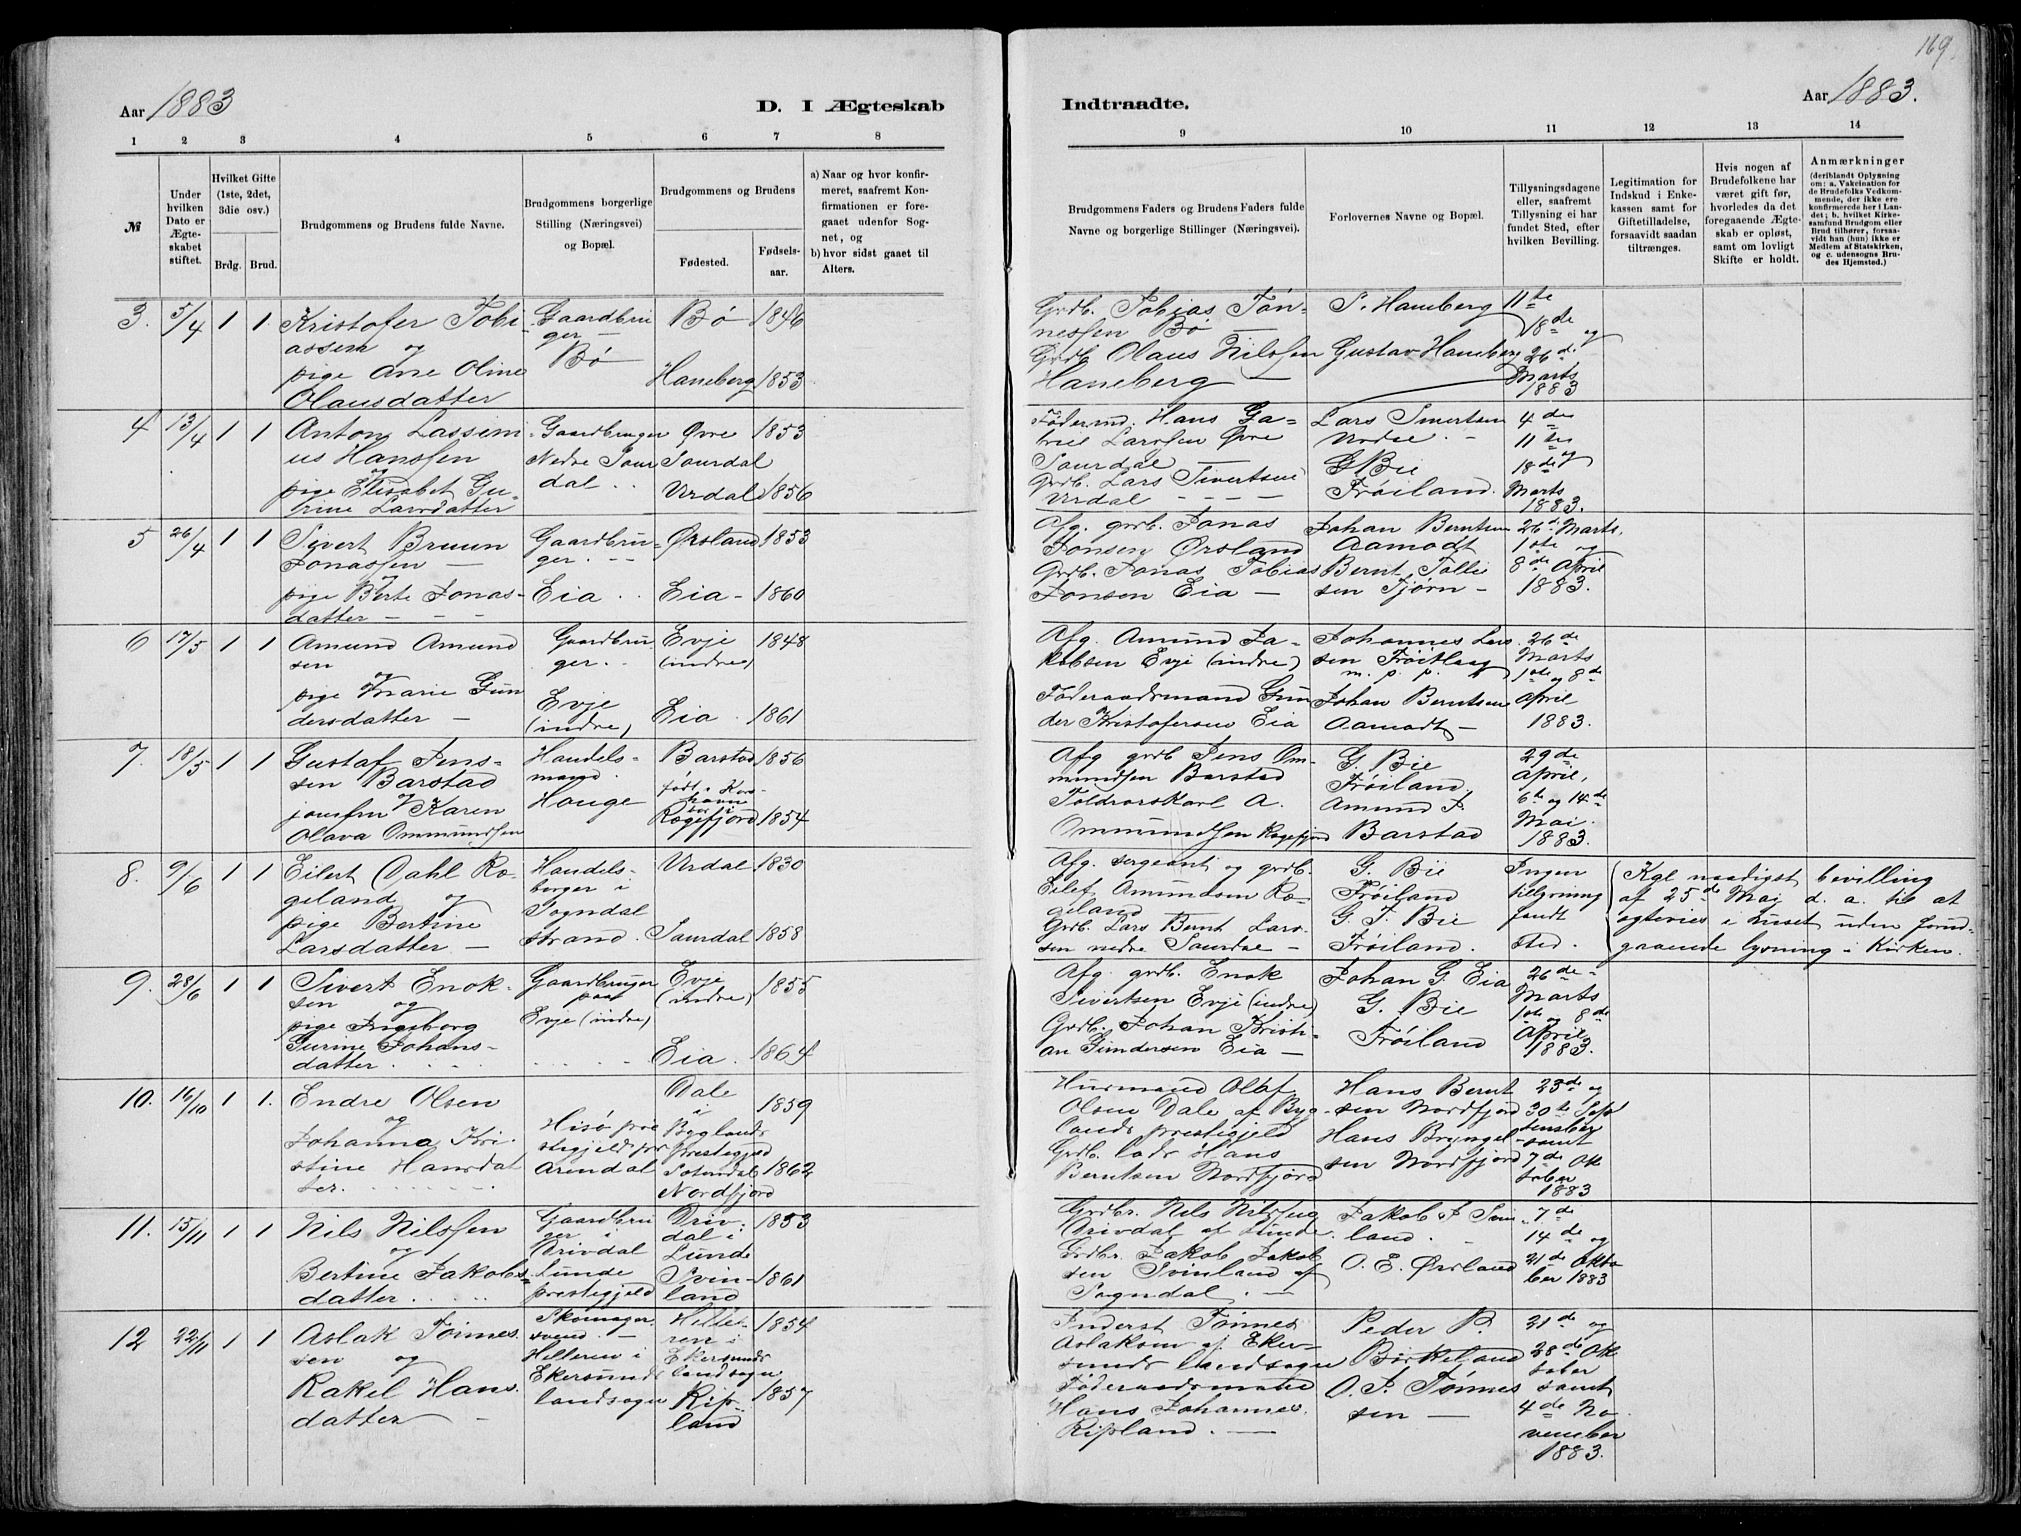 169.
Aar 1883
D. I Ægteskab
Indtraadte.
Aar 1883.
1 2 3 4 5 6 7 8
9 10 11 12 13 14
№
Under hvilken Dato er Ægteskabet stiftet.
Hvilket Gifte (1ste, 2det, 3die osv.)
Brdg. Brud.
Brudgommens og Brudens fulde Navne.
Brudgommens borgerlige Stilling (Næringsvei) og Bopæl.
Brudgommens og Brudens
Fødested.
Fødselsaar.
a) Naar og hvor konfirmeret, saafremt Konfirmationen er foregaaet udenfor Sognet, og
b) hvor sidst gaaet til Alters.
Brudgommens Faders og Brudens Faders fulde Navne og borgerlige Stillinger (Næringsvei).
Forlovernes Navne og Bopæl.
Tillysningsdagene eller, saafremt Tillysning ei har fundet Sted, efter hvilken Bevilling.
Legitimation for Indskud i Enkekassen samt for Giftetilladelse, forsaavidt saadan tiltrænges.
Hvis nogen af Brudefolkene har været gift før, hvorledes da det foregaaende Ægteskab er opløst, samt om lovligt Skifte er holdt.
Anmærkninger
(deriblandt Oplysning om: a. Vakcination for de Brudefolks Vedkommende, der ikke ere konfirmerede her i Landet; b. hvilket Kirkesamfund Brudgom eller Brud tilhører, forsaavidt han (hun) ikke er Medlem af Statskirken, og c. udensogns Brudes Hjemsted.)
3. 5/4 1 1.
Kristofer Tobi
assen og
pige Ane Oline
Olausdatter
Gaardbru
ger
Bø
Bø 1846
Haneberg 1853
Grdb. Tobias Tøn-
nessen Bø
Grdb Olaus Nilssen
Haneberg
S. Haneberg
Gustav Haneberg
11te
18de og
26d.
Marts
1883
4 13/4 1 1
Anton Lassen
ius Hanssen
og
pige Elisabet Gu-
rine Larsdatter
Gaardbruger
Nedre Saur
dal
Øvre 1853
Saurdal
Urdal 1856
Fødermd. Hans Ga-
briel Larssen Øvre
Saurdal
Grdb. Lars Sivertsen
Urdal
Lars Sivertsen
G Bie
Frøiland.
4de
11te
18de og
Marts
1883.
5 26/4 1 1
Sivert Bruun
Jonassen
og
pige Berte Jonas-
datter
Gaardbru-
ger.
Eia
Ørsland 1853
Eia 1860
Afg. grdb. Jonas
Jonsen Ørsland
Grdb. Jonas Tobias
Jonsen Eia
Johan Berntsen
Aamodt
Bernt Tolli
sen Tjørn
26d. Marts.
1ste og
8de April
1883.
6 17/5 1 1
Amund Amund
sen
og
pige Marie Gun
dersdatter
Gaardbru
ger.
Evje
(indre)
Evje 1848
(indre)
Eia 1861
Afg. Amund Ja-
kobsen Evje (indre)
Føderaadsmand Gun
der Kristofersen Eia
Johannes Lars
sen Frøitlag
m. p. p.
Johan Berntsen
Aamodt
26de
Marts
1ste og 8de
April
1883.
7. 18/5 1 1
Gustaf Jens-
sen Barstad
og
jomfru Karen
Olava Ommundsen
Handels-
mand.
Hauge
Barstad 1856
født i Kors
havn
bor i
Rægefjord 1854
Afg grdb Jens Om-
mundsen Barstad
Toldrorskarl A.
Ommundsen Rægefjord
G. Bie
Frøiland.
Amund J.
Barstad
29de
April,
6te og 14de
Mai.
1883.
8. 9/6 1 1
Eilert Dahl Ro-
geland og
pige Bertine
Larsdatter
Handels-
borger i
Sogndal
strand.
Urdal 1830
Saurdal 1858
Afg. sergeant og grdb.
Eilef Amundsen Ro-
geland
Grdb. Lars Bernt Lars-
sen nedre Saurdal
G. Bie
Frøiland
G. T. Bie
Frøiland.
Ingen
tillysning
fandt
sted.
Kgl naadigst bevilling
af 25de Maj d. a. til at
ægtevies i huset uden forud-
gaaende lysning i Kirken.
9. 28/6 1 1
Sivert Enok-
sen og
pige Ingeborg
Gurine Johans-
datter
Gaardbruger
paa
Evje (indre)
Evje 1855
(indre)
Eia. 1864
Afg. grdb. Enok
Sivertsen Evje (indre)
Grdb. Johan Kristi-
an Gundersen Eia
Johan G. Eia
G. Bie
Frøiland
26de
Marts
1ste og 8de
April
1883.
10. 16/10 1 1.
Endre Olsen
og
Johanna Kri-
stine Hansdat
ter.
Hisø præ
stegjeld for
Arendal
Dale 1859
i
Byglands
præstegjeld
Soknedal 1862
Nordfjord
Husmand Olaf
Olsen Dale af Byg-
lands prestegjeld
Grdb. lods Hans
Berntsen Nordfjord
Hans Bernt
sen Nordfjord
Hans Bryngel-
sen Nordfjord
23de og
30te Sep
tember
samt
7de Ok
tober
1883
11. 15/11 1 1
Nils Nilssen
og
Bertine Jakobs-
datter
Gaardbru
ger i
Drivdal
Lunde
prestegjeld
Driv- 1853
dal i
Lunde
Svin- 1861
land
Grdbr. Nils Nilssen
Drivdal af Lunde.
Grdbr. Jakob Jakob
sen Svinland af
Sogndal.
Jakob J Svin
land.
O. E. Ørsland
7de
14de og
21de Okto
ber 1883
12 22/11 1 1
Aslak Tønnes
sen og
Rakel Hans
datter
Skomager
svend.
Helleren i
Ekersunds
landsogn
Helle- 1854
ren i
Ekersunds
landsogn
Rips- 1857
land
Inderst Tønnes
Aslaksen af Eker-
sunds landsogn
Føderaadsmand
Hans Johannes.
Ripsland.
Peder P.
Birkeland
O. P. Tønnes
sen
21de og
28de Ok
tober
samt
4de No
vember
1883.